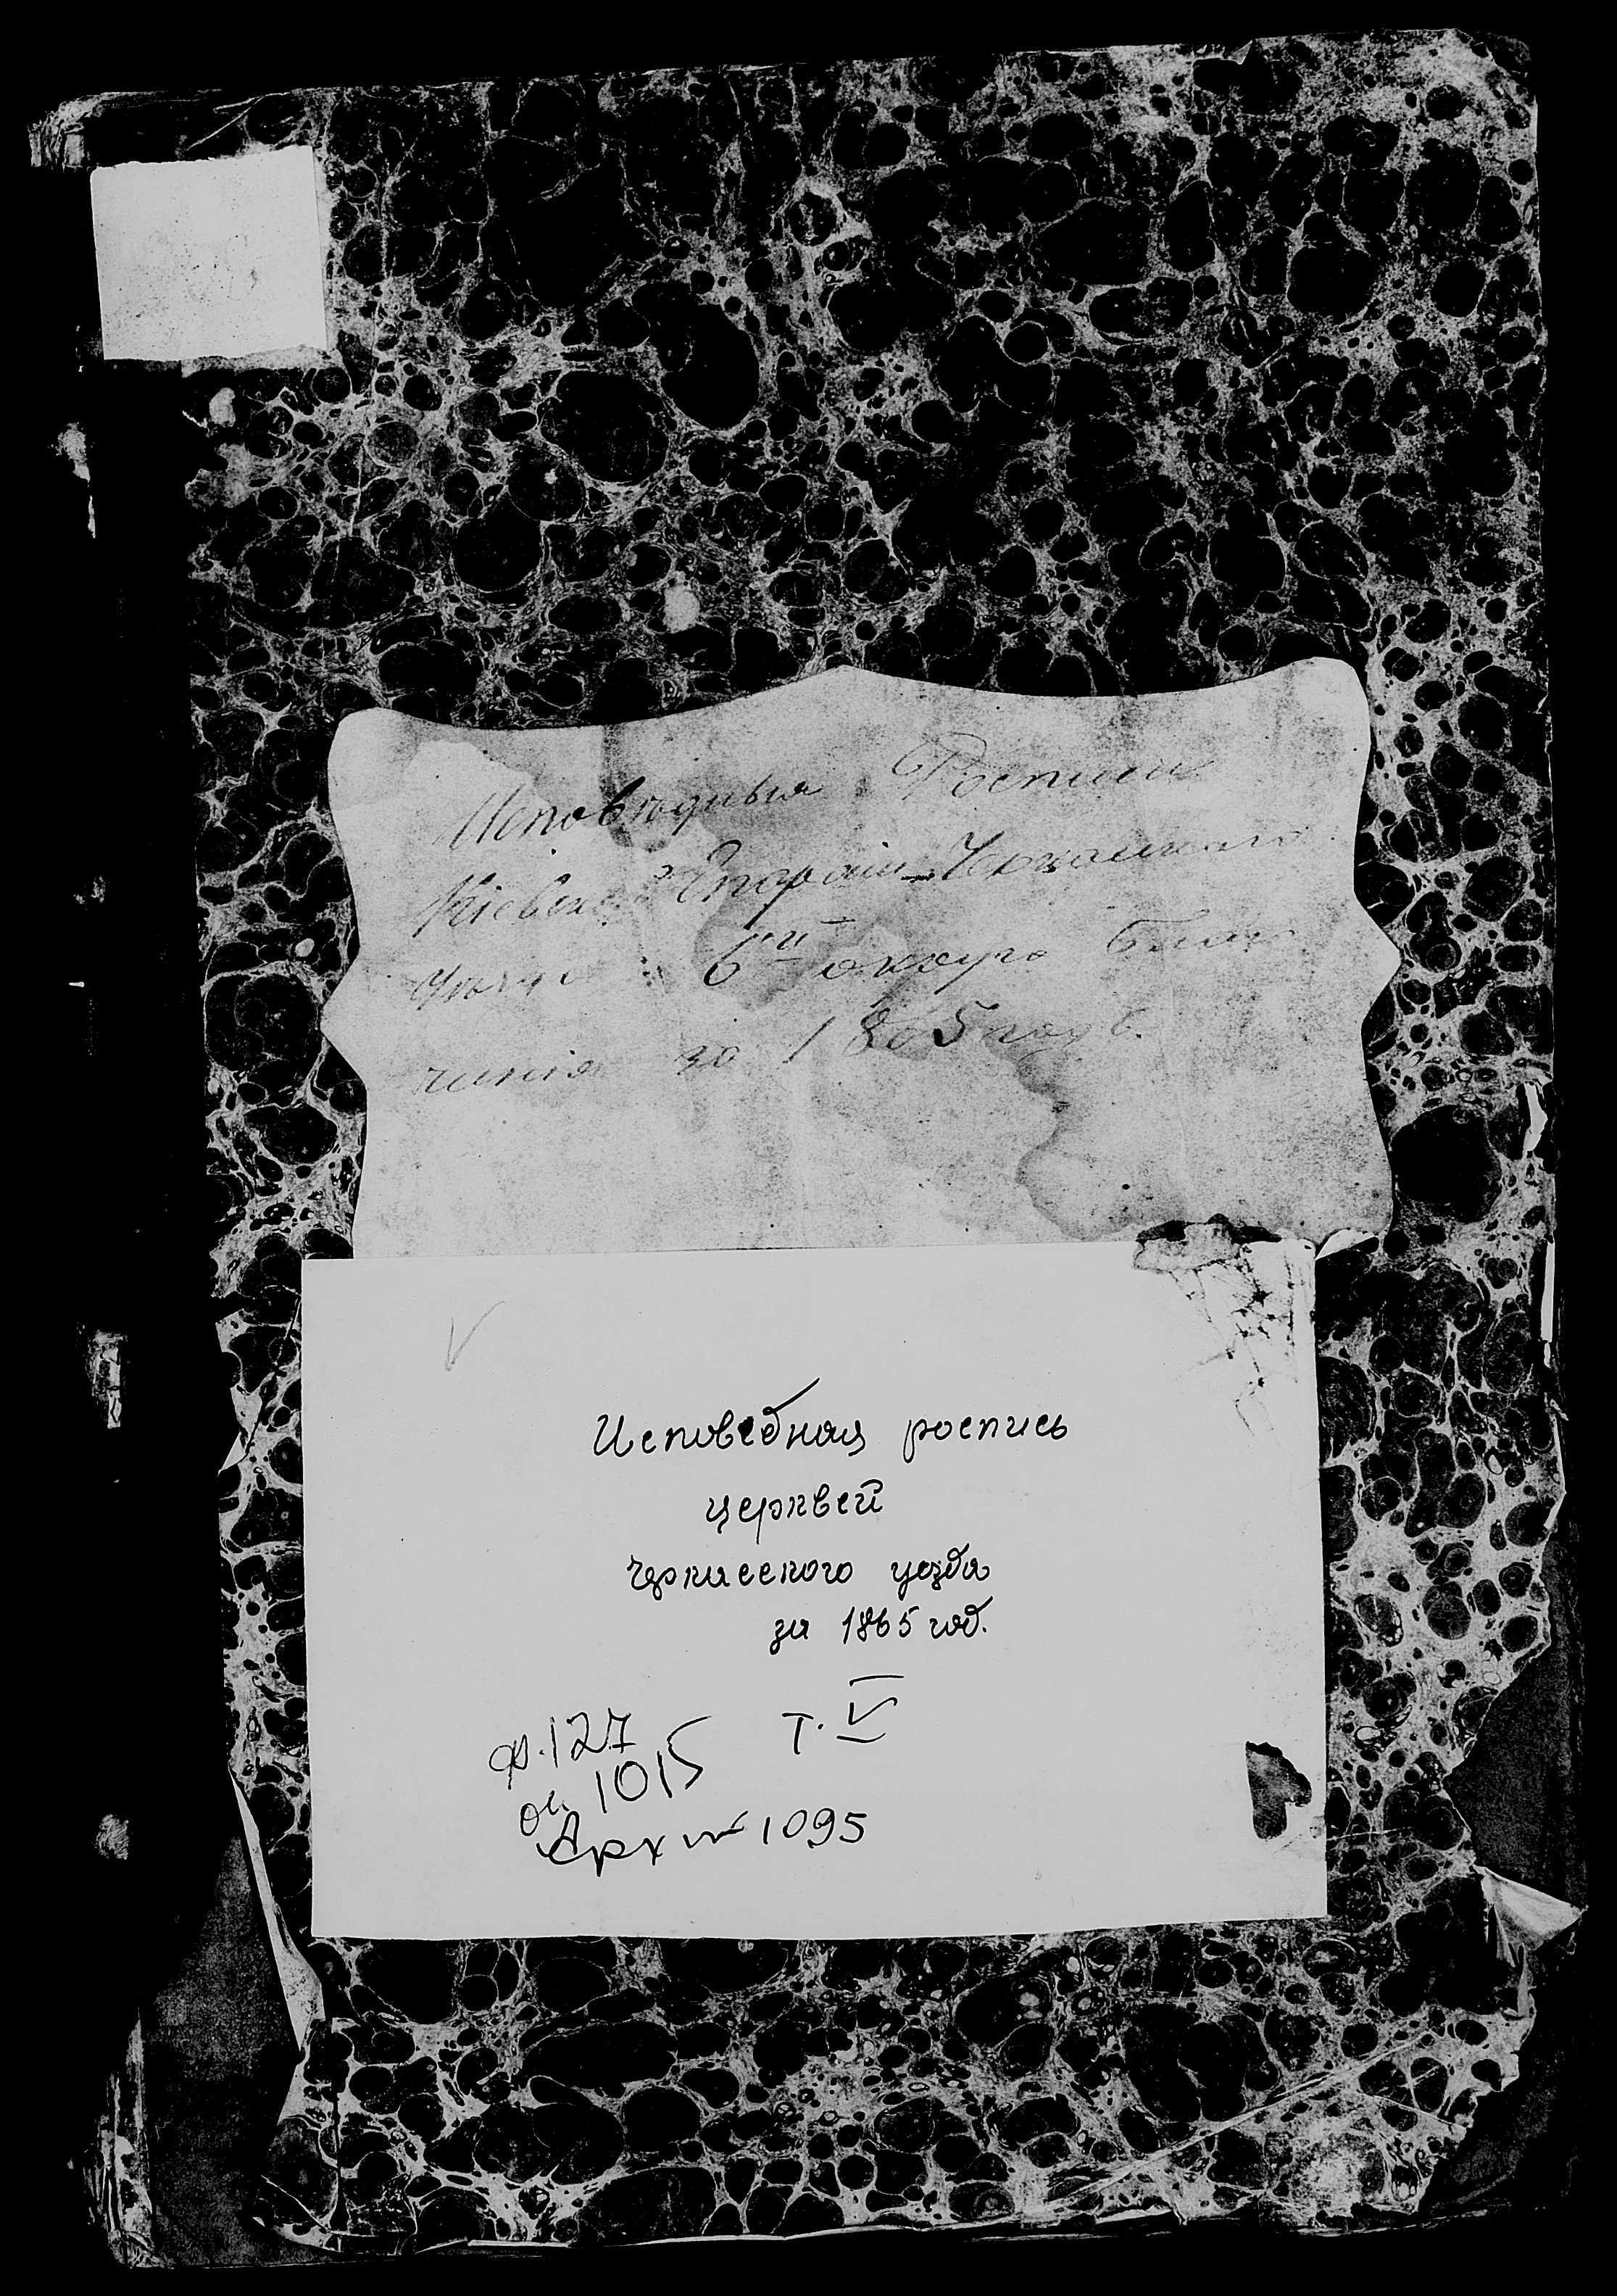 Исповѣдныя Росписи
Кіевской Епархіи Черкасскаго
6й округа Благо
чинія за 1865 годъ.
Исповедная роспись
церквей
Черкасского уезда
за 1865 год.
т. V
ф. 127
оп. 1015
Арх № 1095